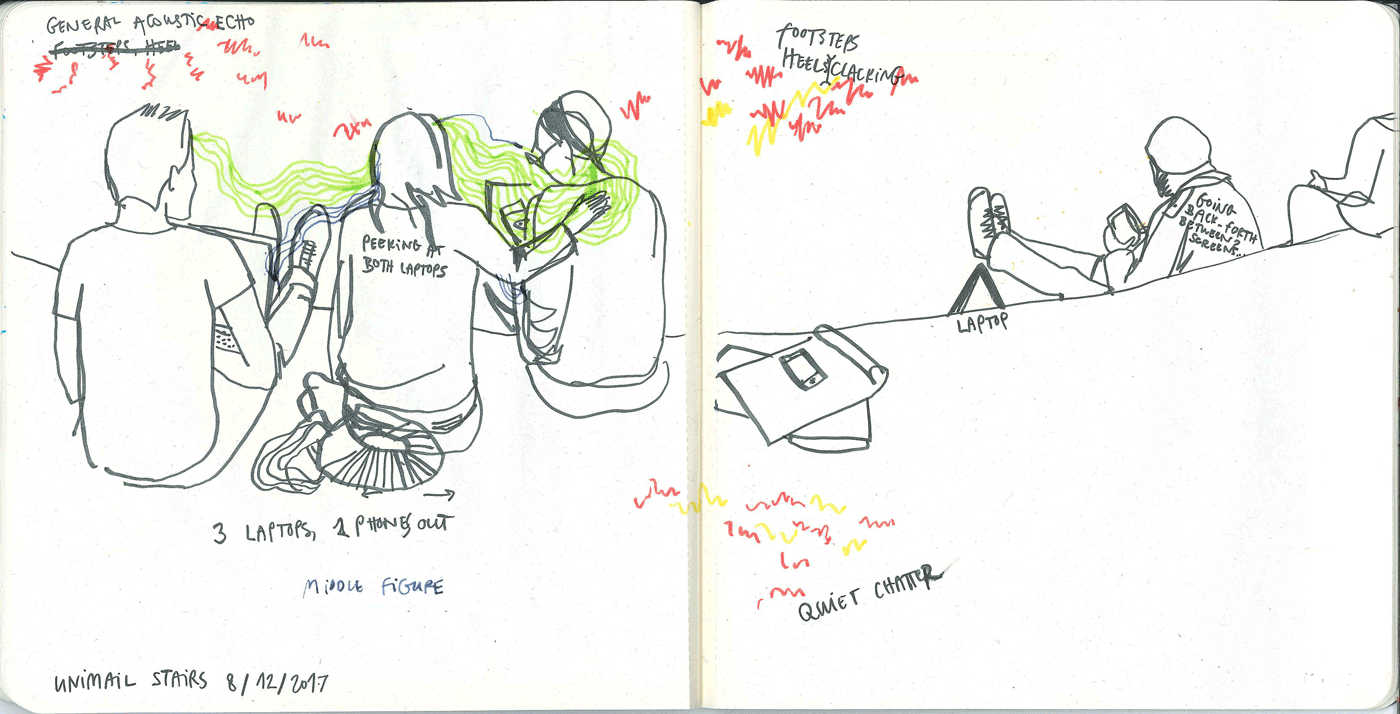 GENERAL ACOUSTIC ECHO
FOOTSTEPS, HEEL
PEEKING AT
BOTH LAPTOPS
3 LAPTOPS, 1 PHONE OUT
MIDDLE FIGURE
UNIMAIL STAIRS 8/12/2017
FOOTSTEPS
HEELS CLACKING
GOING
BACK-FORTH
BETWEEN 2
SCREENS...
LAPTOP
QUIET CHATTER